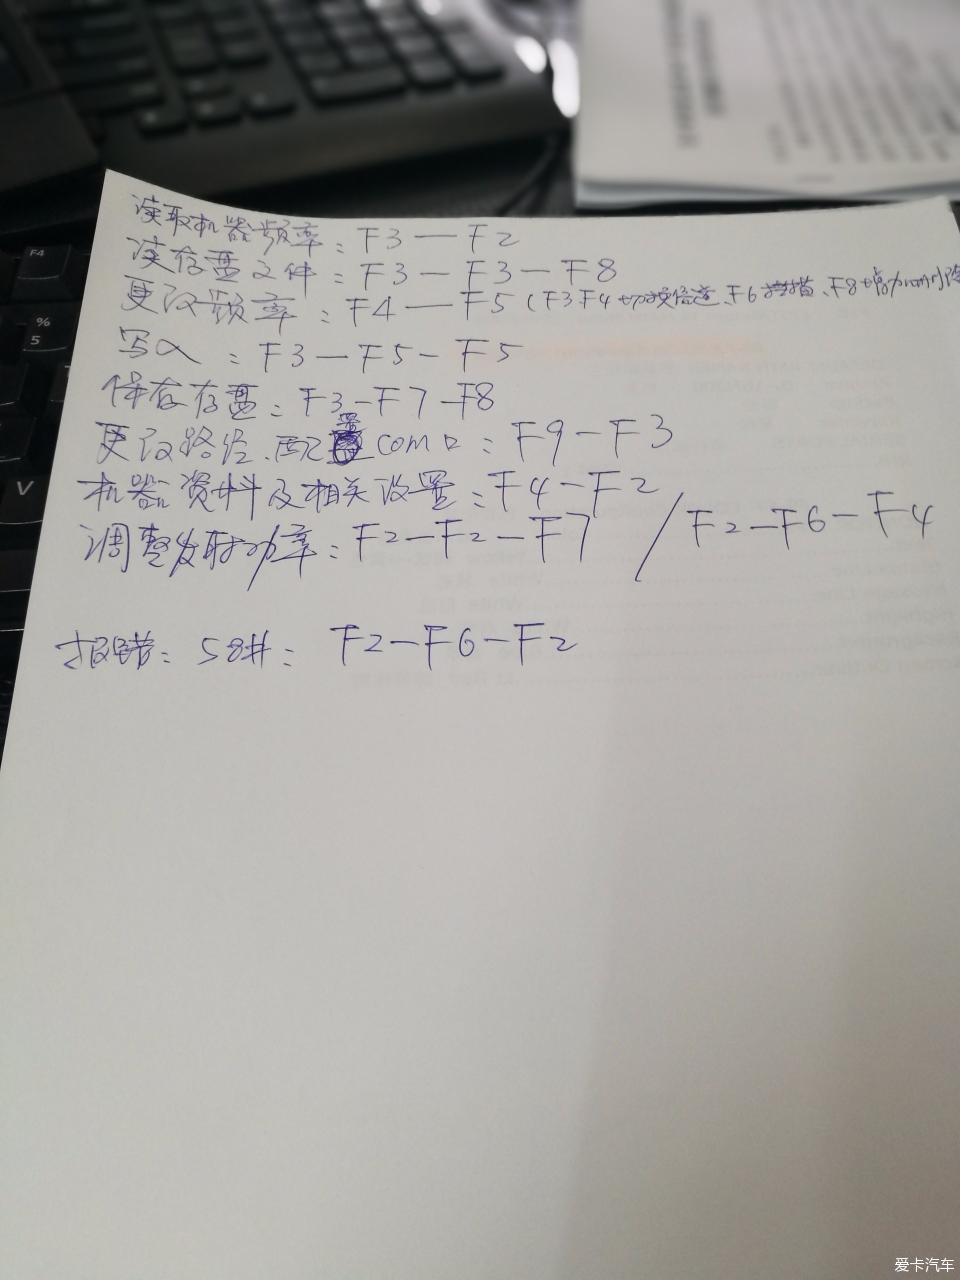 读取机器频率：F3—F2
读存盘文件：F3—F3—F8
更改频率：F4—F5（F3 F4切换信道、F6扫描、F8增加
写入：F3—F5-F5
保存存盘：F3-F7-F8
更改路径、配置com口：F9-F3
机器资料及相关设置：F4-F2
调整发射功率：F2-F2-F7 / F2-F6-F4
报错：58#：F2-F6-F2
F4
%
5
V
爱卡汽车